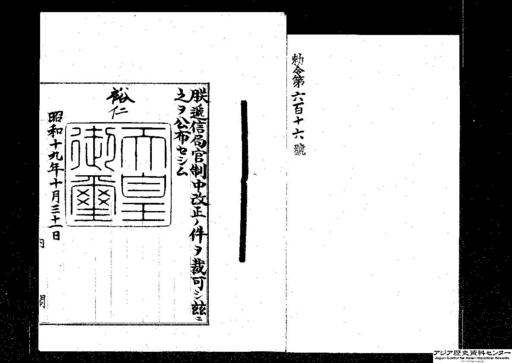 勅令第六百十六號
朕遞信局官制中改正ノ件ヲ裁可シ玆ニ
之ヲ公布セシム
裕仁
天皇
御璽
昭和十九年十月三十一日
内 閣
アジア歴史資料センター
Japan Center for Asian Historical Records